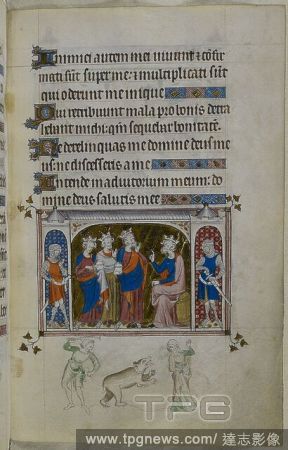 Inimici autem mei vivunt & cōfir
mati sūt super me: & multiplicati sūt
qui oderunt me inique
Qui retribuunt mala pro bonis detra
hebant michi: qm̄ sequebar bonitatē.
Ne derelinquas me domine deus me
us: ne discesseris a me
Intende in adiutorium meum: do
mine deus salutis mee
TPG
www.tpgnews.com / 達志影像